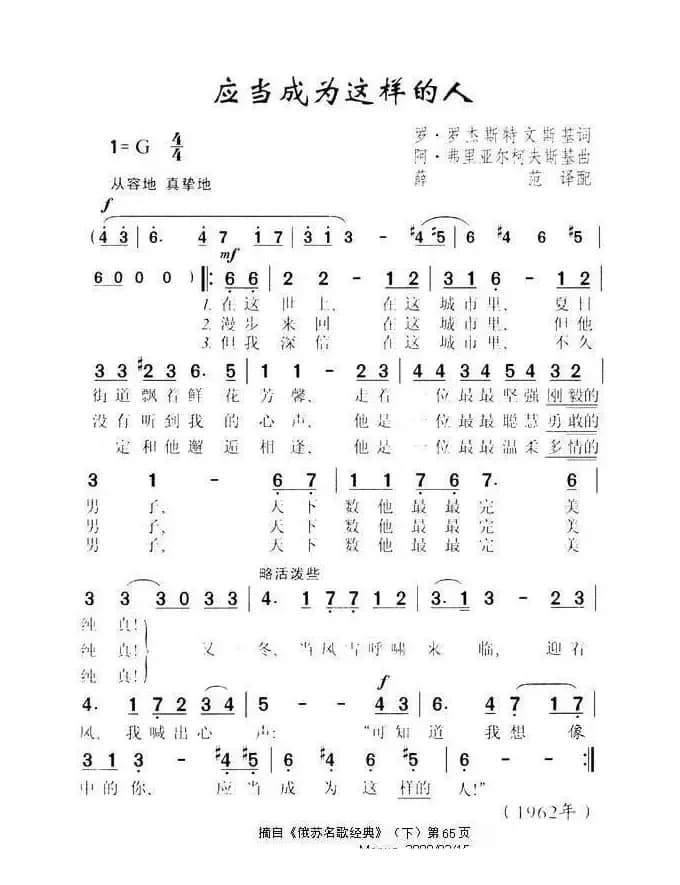 应当成为这样的人
1=G 4/4
罗·罗杰斯特文斯基词
阿·弗里亚尔柯夫斯基曲
薛 范 译配
从容地 真挚地
f
( 4 3 | 6. 4 7 1 7 | 3 1 3 - #4 #5 | 6 #4 6 #5 |
mf
6 0 0 0 ) ‖: 6 6 | 2 2 - 1 2 | 3 1 6 - 1 2 |
1. 在这 世上, 在这 城市里, 夏日
2. 漫步 来回 在这 城市里, 但他
3. 但我 深信 在这 城市里, 不久
3 3 #2 3 6. 5 | 1 1 - 2 3 | 4 4 3 4 5 4 3 2 |
街道飘着鲜 花 芳馨, 走着 一位最最坚强刚毅的
没有听到我 的 心声, 他是 一位最最聪慧勇敢的
一定和他邂 逅 相逢, 他是 一位最最温柔多情的
3 1 - 6 7 | 1 1 7 6 7. 6 |
男 子, 天下 数他最最完 美
男 子, 天下 数他最最完 美
男 子, 天下 数他最最完 美
略活泼些
3 3 3 0 3 3 | 4. 1 7 7 1 2 | 3. 1 3 - 2 3 |
纯 真!
纯 真! 又一 冬, 当风雪呼啸 来 临, 迎着
纯 真!
f
4. 1 7 2 3 4 | 5 - - 4 3 | 6. 4 7 1 7 |
风, 我喊出心 声: “可知 道 我想 像
3 1 3 - #4 #5 | 6 #4 6 #5 | 6 - - :‖
中的你, 应当 成 为 这 样的 人!”
(1962年)
摘自《俄苏名歌经典》(下)第65页